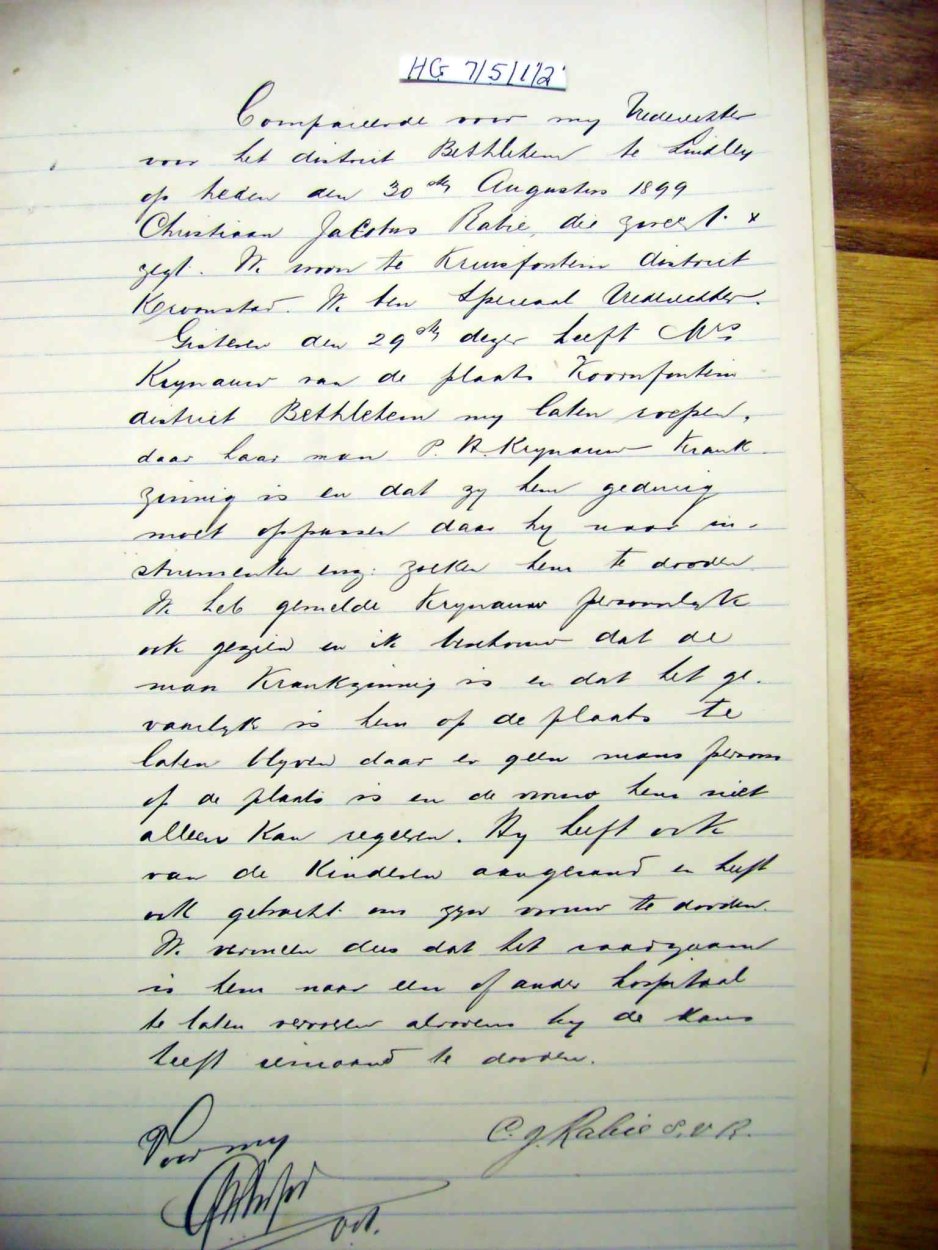 HG 7/5/1/2
Compareerde voor my Vrederechter
voor het district Bethlehem te Lindley
op heden den 30ste Augustus 1899
Christiaan Jacobus Rabie, die zweert x
zegt. Ik woon te Kruisfontein district
Kroonstad. Ik ben Speciaal Vrederechter.
Gisteren den 29ste dezer heeft Mrs
Krynauw van de plaats Doornfontein
district Bethlehem my laten roepen,
daar haar man P. H. Krynauw Krank-
zinnig is en dat zy hem gedurig
moet oppassen daar hy naar in-
strumenten enz: zoeken hem te dooden.
Ik heb gemelde Krynauw persoonlyk
ook gezien en ik beschouw dat de
man Krankzinnig is en dat het ge-
vaarlyk is hem op de plaats te
laten blyven daar er geen mans persoon
op de plaats is en de vrouw hem niet
alleen Kan regeren. Hy heeft ook
van de Kinderen aangerand en heeft
ook getracht om zyn vrouw te dooden.
Ik vermeen dus dat het raadzaam
is hem naar een of ander hospitaal
te laten vervoeren alvorens hy de kans
heeft iemand te dooden.
C. J. Rabie S. V. R.
Voor my